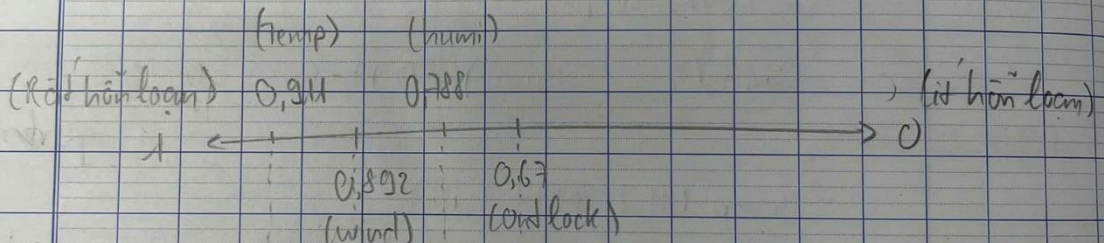 (temp) (humi)
(Rất hỗn loạn) 0,911 0,788 (ít hỗn loạn)
1 0
0,892 0,67
(wind) (outlock)